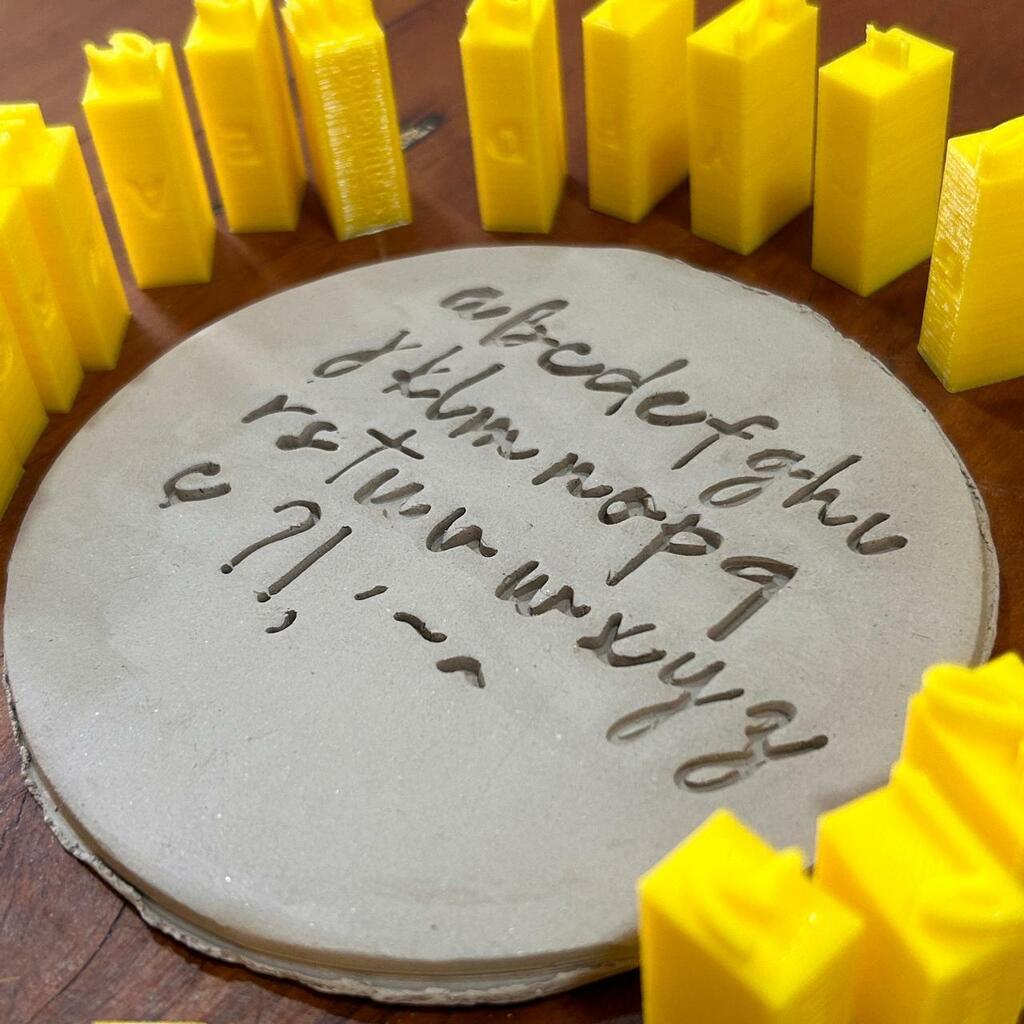 abcdefghi
jklmnopq
rstuvwxyz
c?!,´~^